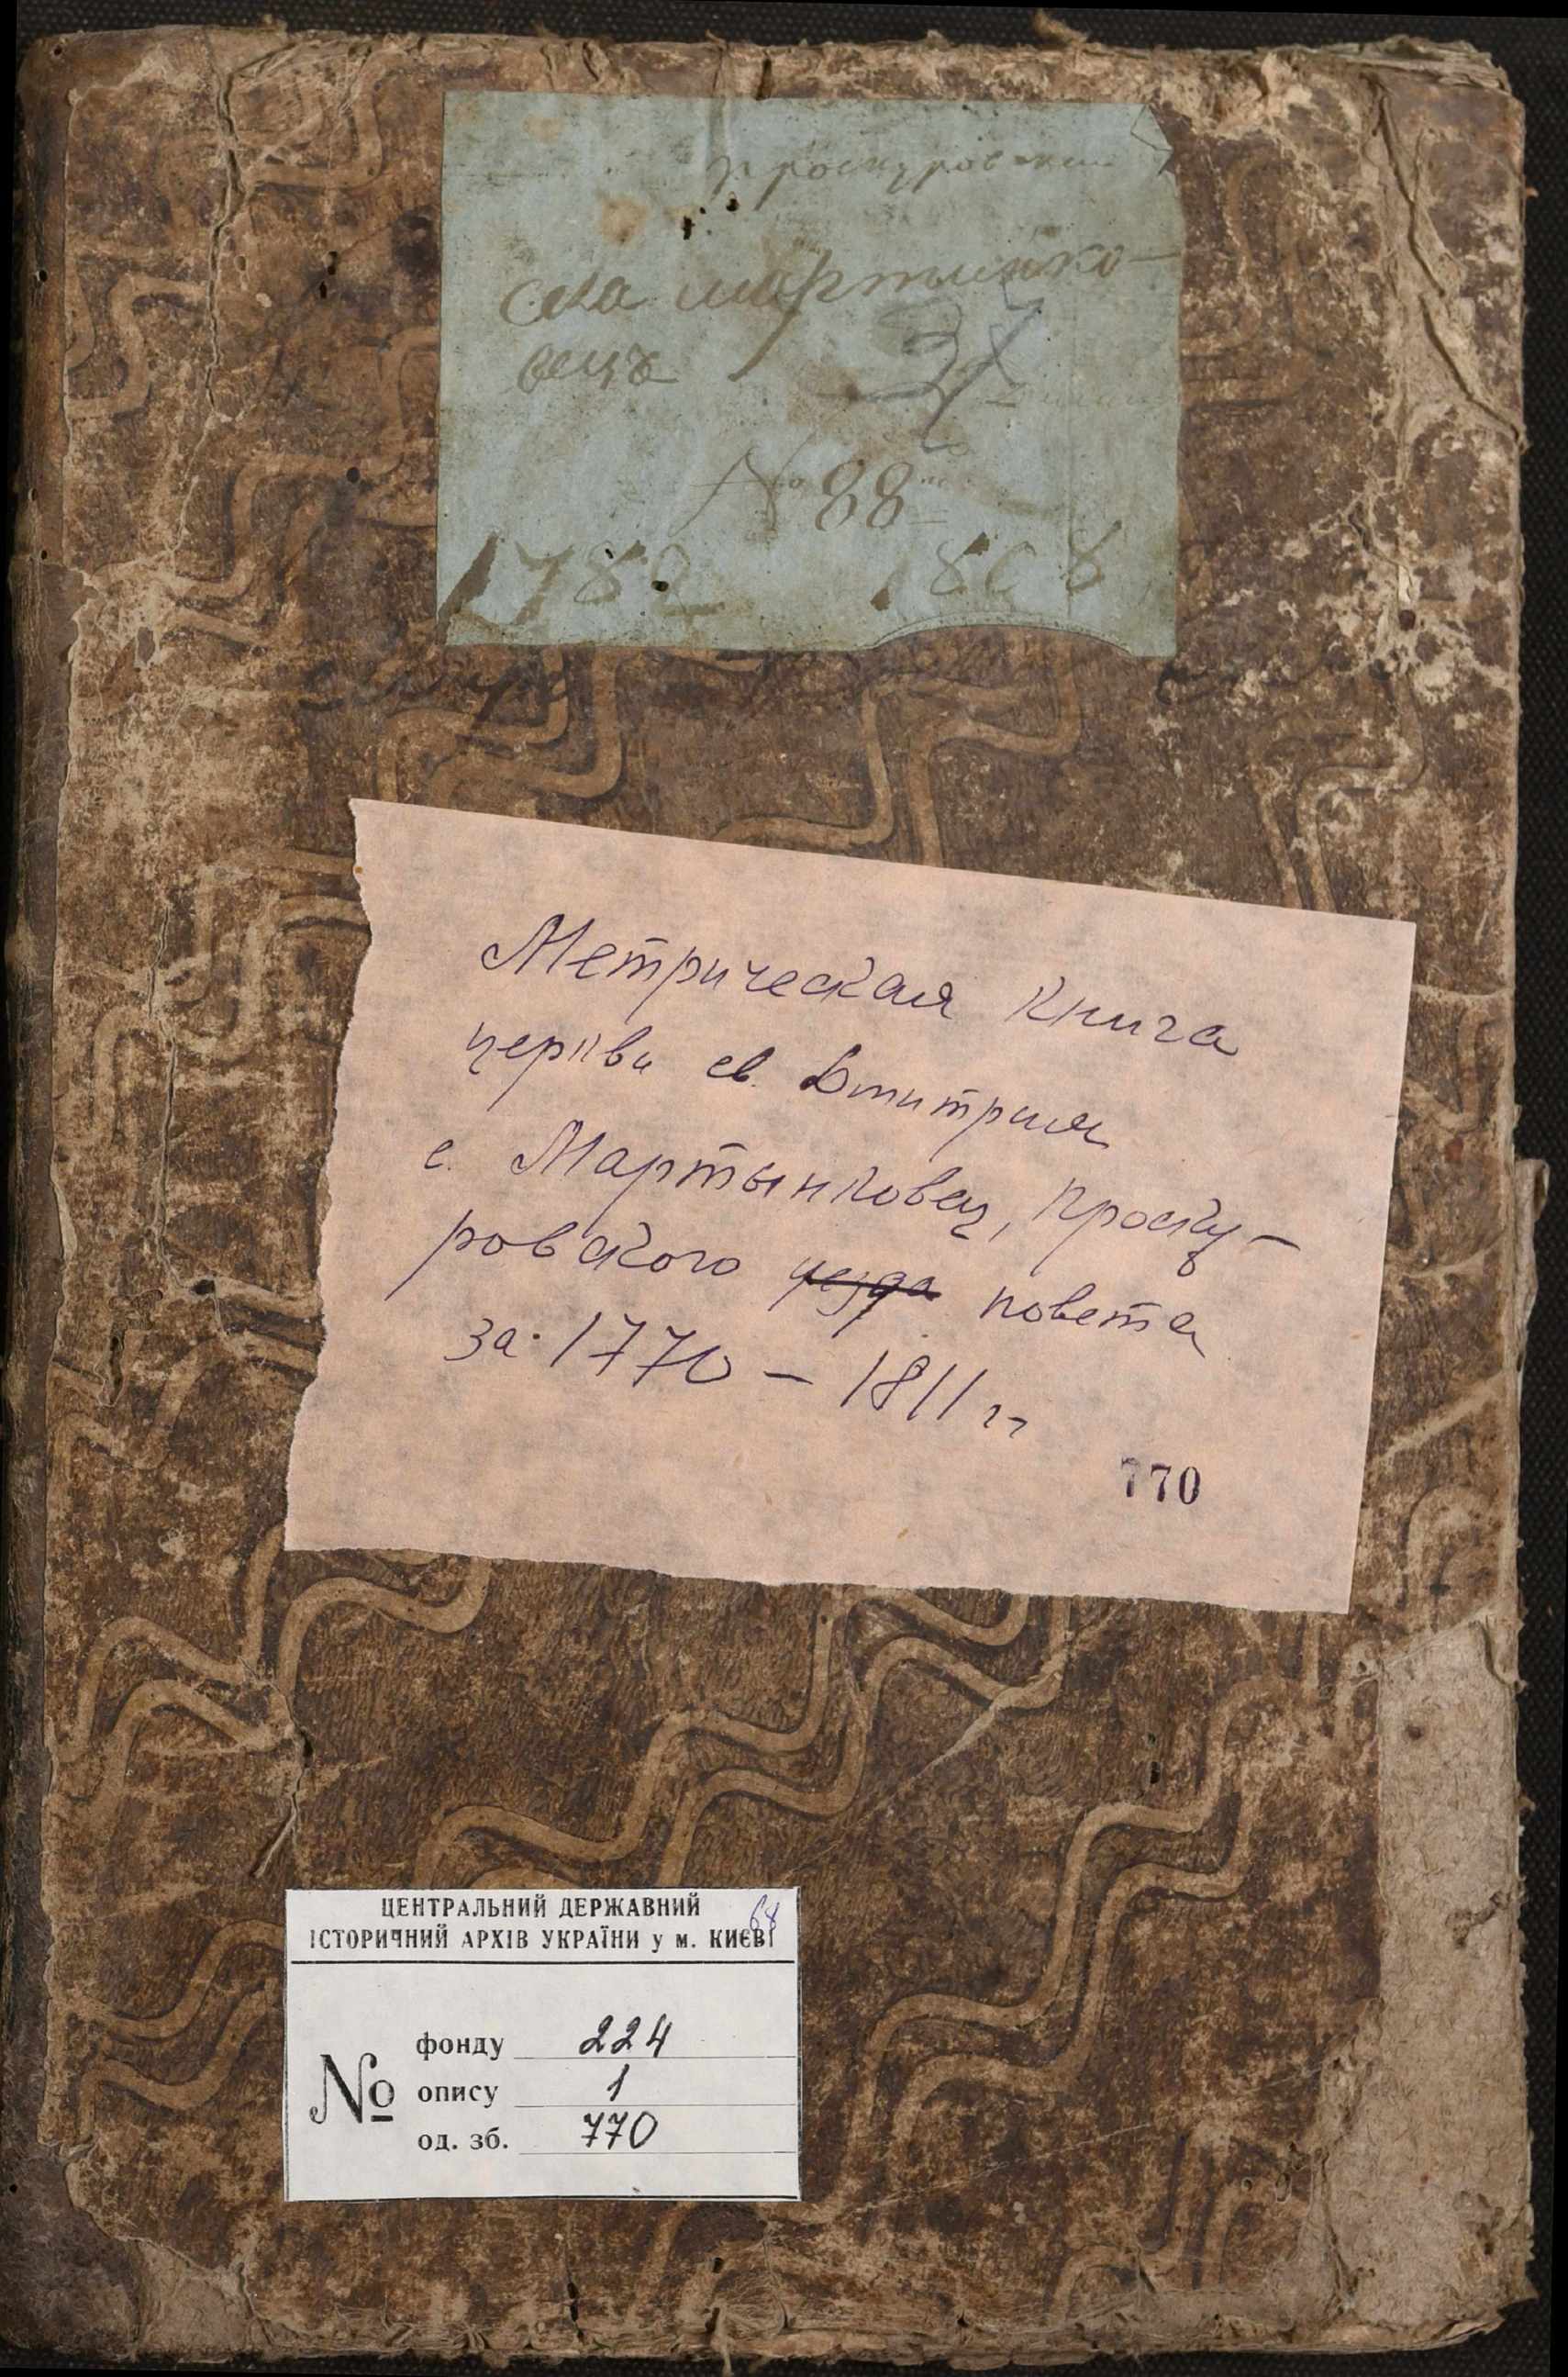 Проскуровский
села мартынко-
вецъ
№ 88
1782 1808
Метрическая книга
церкви св. Дмитрия
с. Мартынковец, Проску-
ровского уезда повета
за 1770 – 1811 гг
770
68
ЦЕНТРАЛЬНИЙ ДЕРЖАВНИЙ
ІСТОРИЧНИЙ АРХІВ УКРАЇНИ у м. КИЄВІ
№
фонду 224
опису 1
од. зб. 770